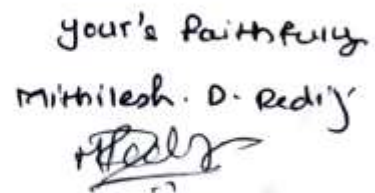 your's Faithfully
Mithilesh. D. Redij